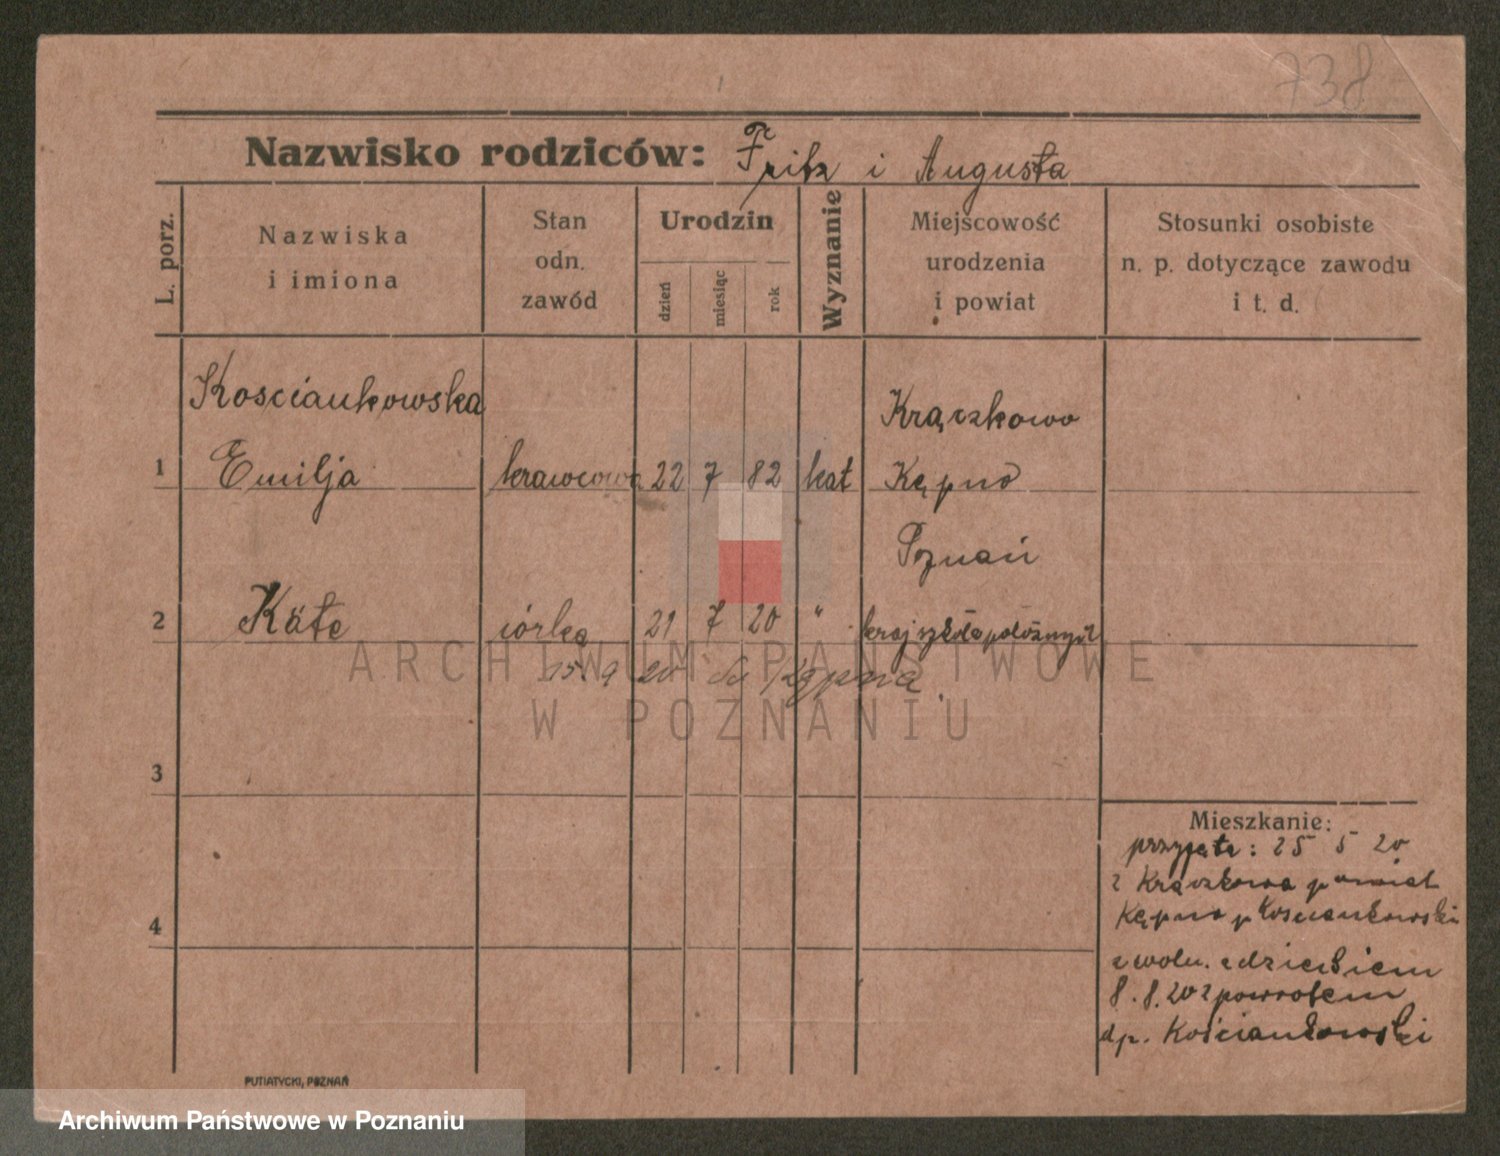 738
Nazwisko rodziców: Fritz i Augusta
L. porz.
Nazwiska
i imiona
Stan
odn.
zawód
Urodzin
dzień
miesiąc
rok
Wyznanie
Miejscowość
urodzenia
i powiat
Stosunki osobiste
n. p. dotyczące zawodu
i t. d.
Kosciankowska Krączkowo
1 Emilja krawcowa 22 7 82 kat Kępno
Poznań
2 Käte córka 21 7 20 " kraj szkoła położnych
15. 9 20 do Kępna.
3
4
Mieszkanie:
przyjęta: 25 5 20
z Krączkowa powiat
Kępno p Kosciankowski
zwoln. z dzieckiem
8. 8. 20 z powrotem
dp. Kościankowski
PUTIATYCKI, POZNAŃ
ARCHIWUM PAŃSTWOWE
W POZNANIU
Archiwum Państwowe w Poznaniu